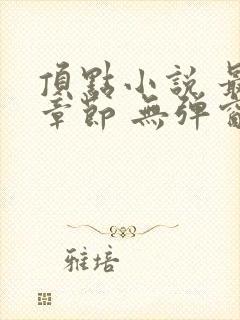 頂點小說 最
章節 無彈窗
雅培